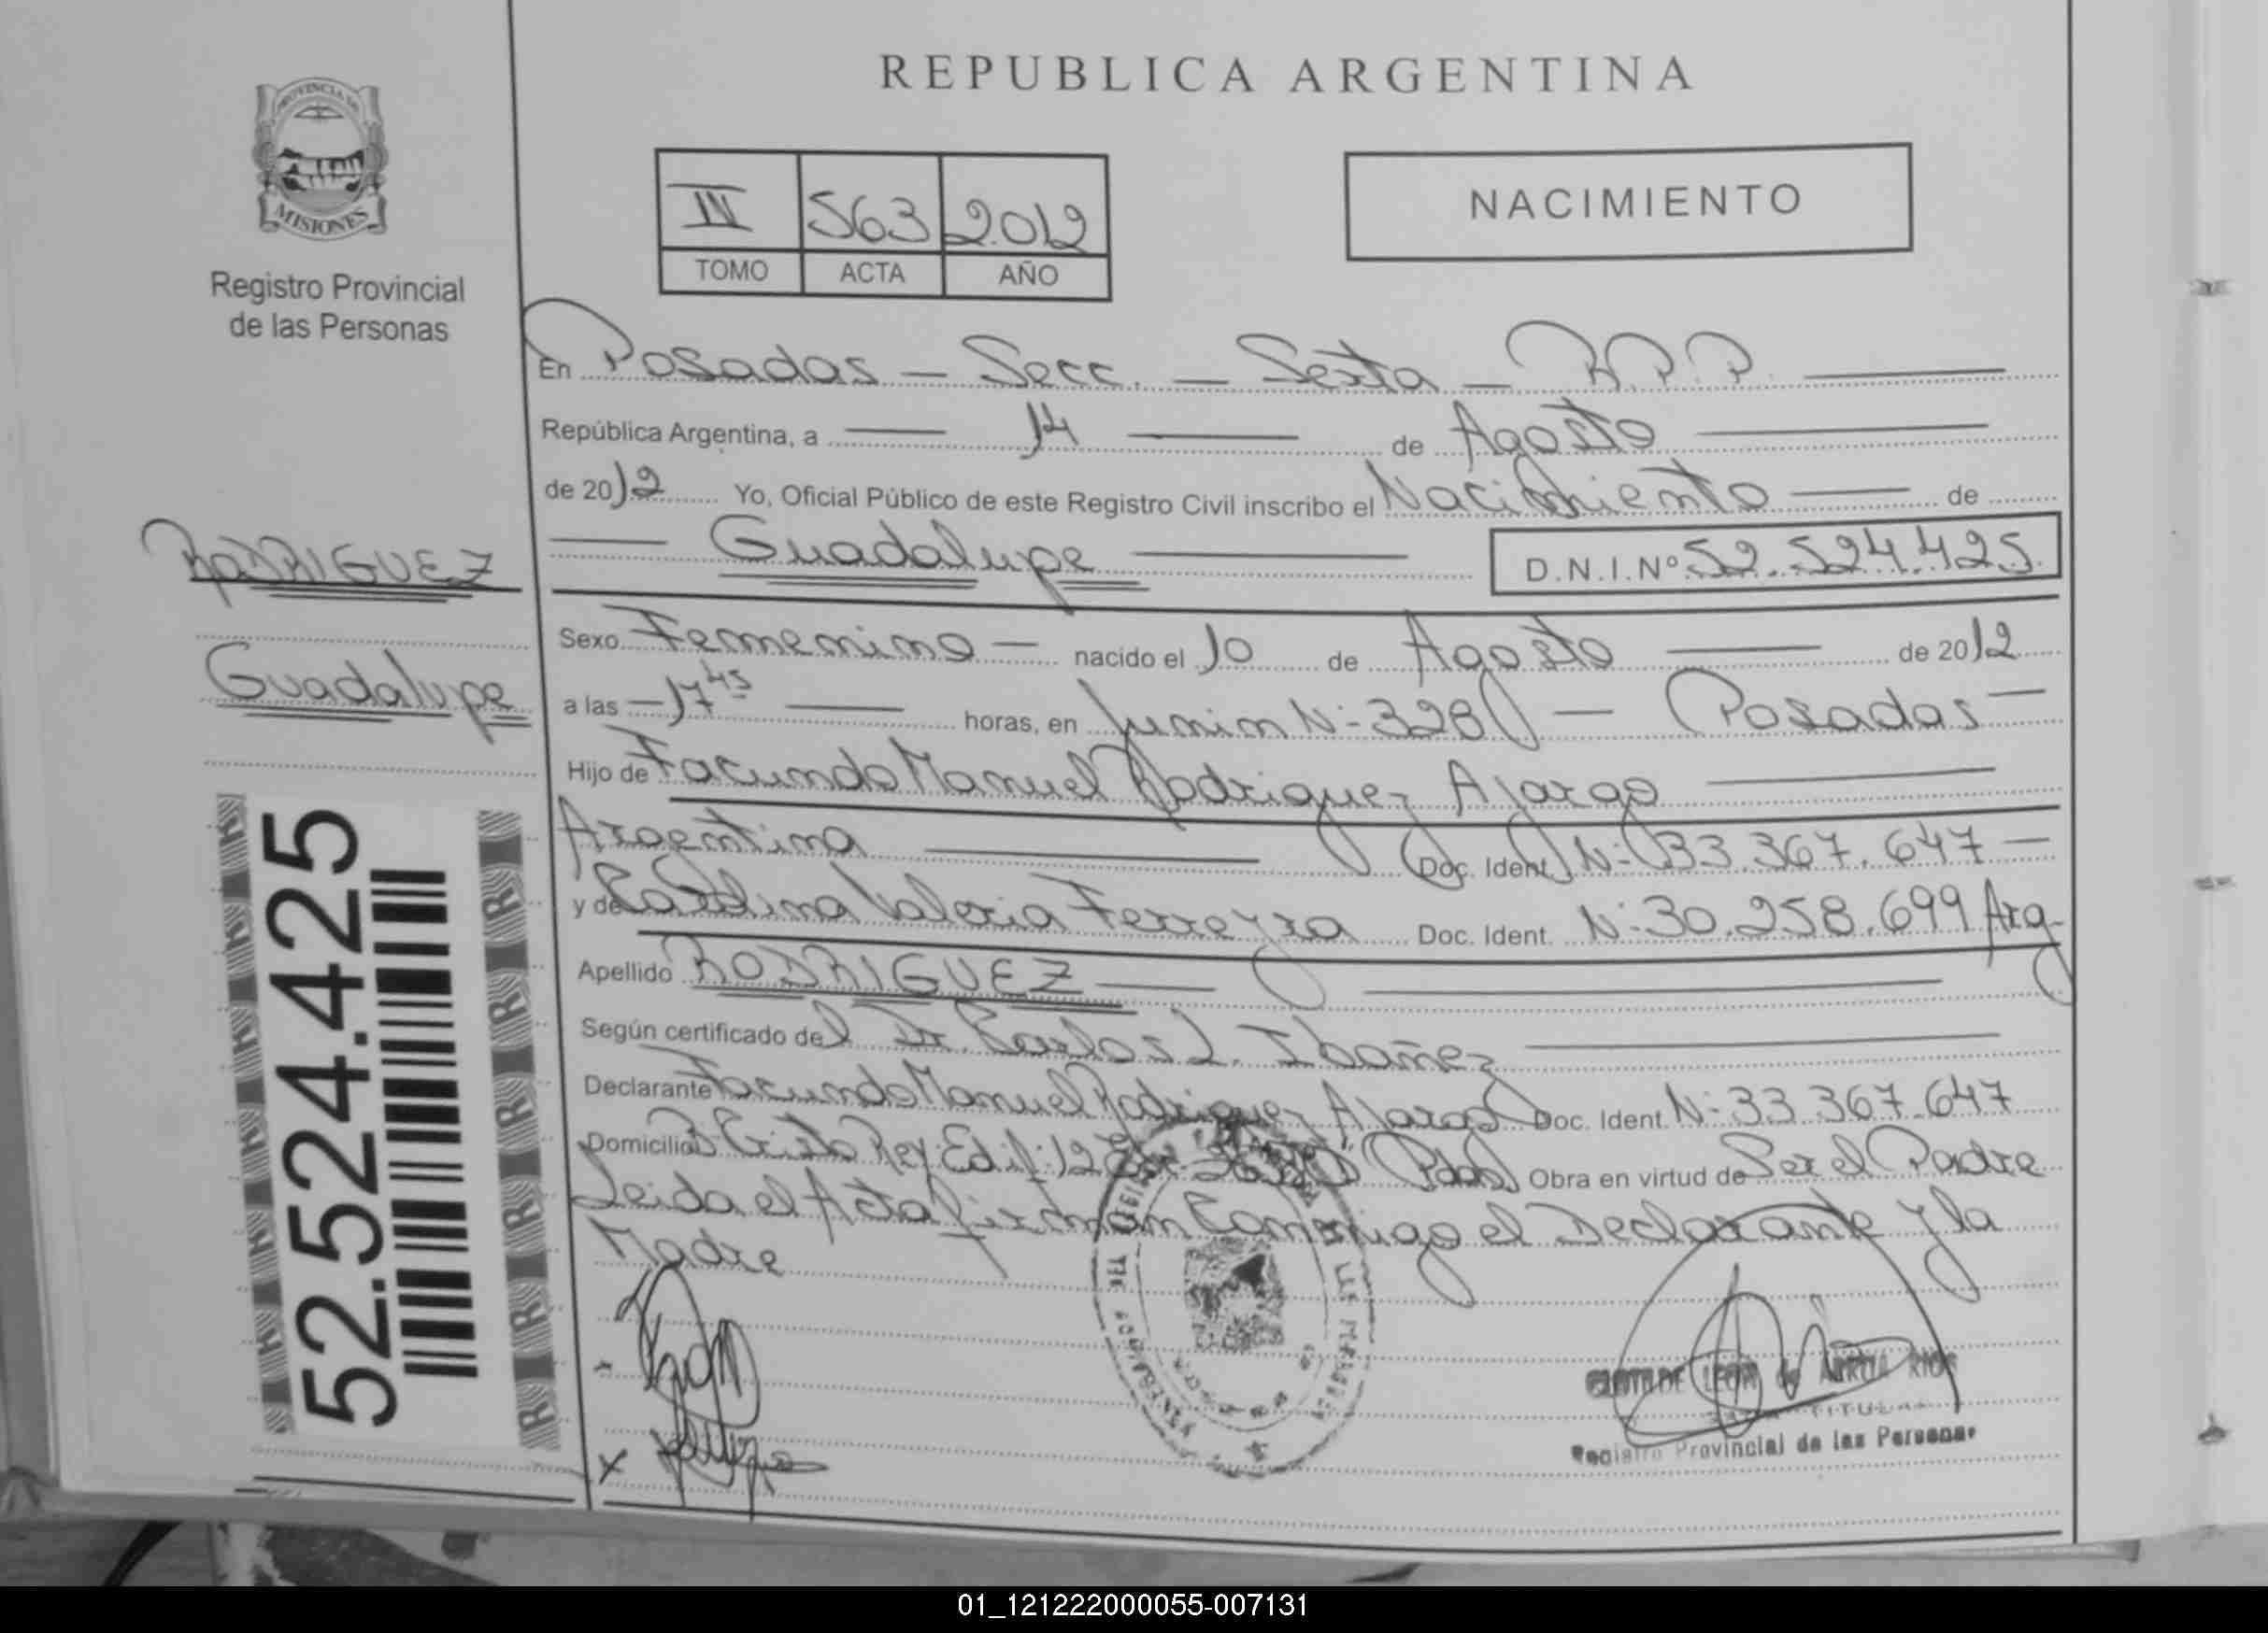 REPUBLICA ARGENTINA
PROVINCIA DE
MISIONES
Registro Provincial
de las Personas
IV 563 2.012
TOMO ACTA AÑO
NACIMIENTO
En Posadas – Secc. – Sexta – R.P.P.
República Argentina, a 14 de Agosto
de 2012 Yo, Oficial Público de este Registro Civil inscribo el Nacimiento de
Guadalupe D.N.I.Nº 52.524.425
RODRIGUEZ
Guadalupe
Sexo Femenino – nacido el 10 de Agosto de 2012
a las – 17 45 horas, en Junin Nº 328 – Posadas –
Hijo de Facundo Manuel Rodriguez
Argentina Doc. Ident. Nº 33.367.647 –
y de Valeria Ferreyra Doc. Ident. Nº 30.258.699 Arg.
Apellido RODRIGUEZ
Según certificado del Dr. Carlos L. Ibañez
Declarante Facundo Manuel Rodriguez Doc. Ident. Nº 33.367.647
Domicilio Bº Cristo Rey Edif: Pdas Obra en virtud de Ser el Padre
Leida el Acta firman Conmigo el Declarante y la
Madre
52.524.425
R R R R R
X
LEON de RIOS
TITULAR
Registro Provincial de las Personas
01_121222000055-007131